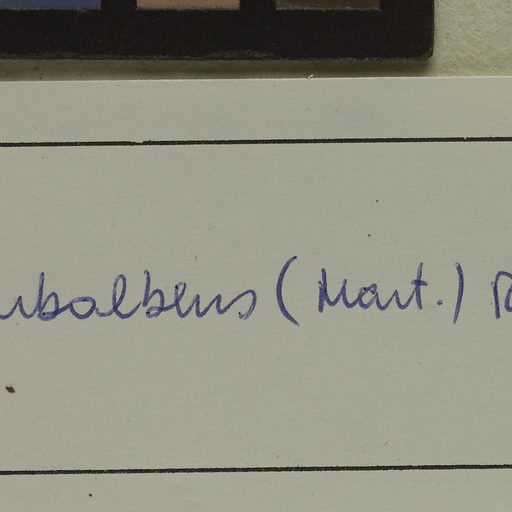 ubalbens (Mart.)